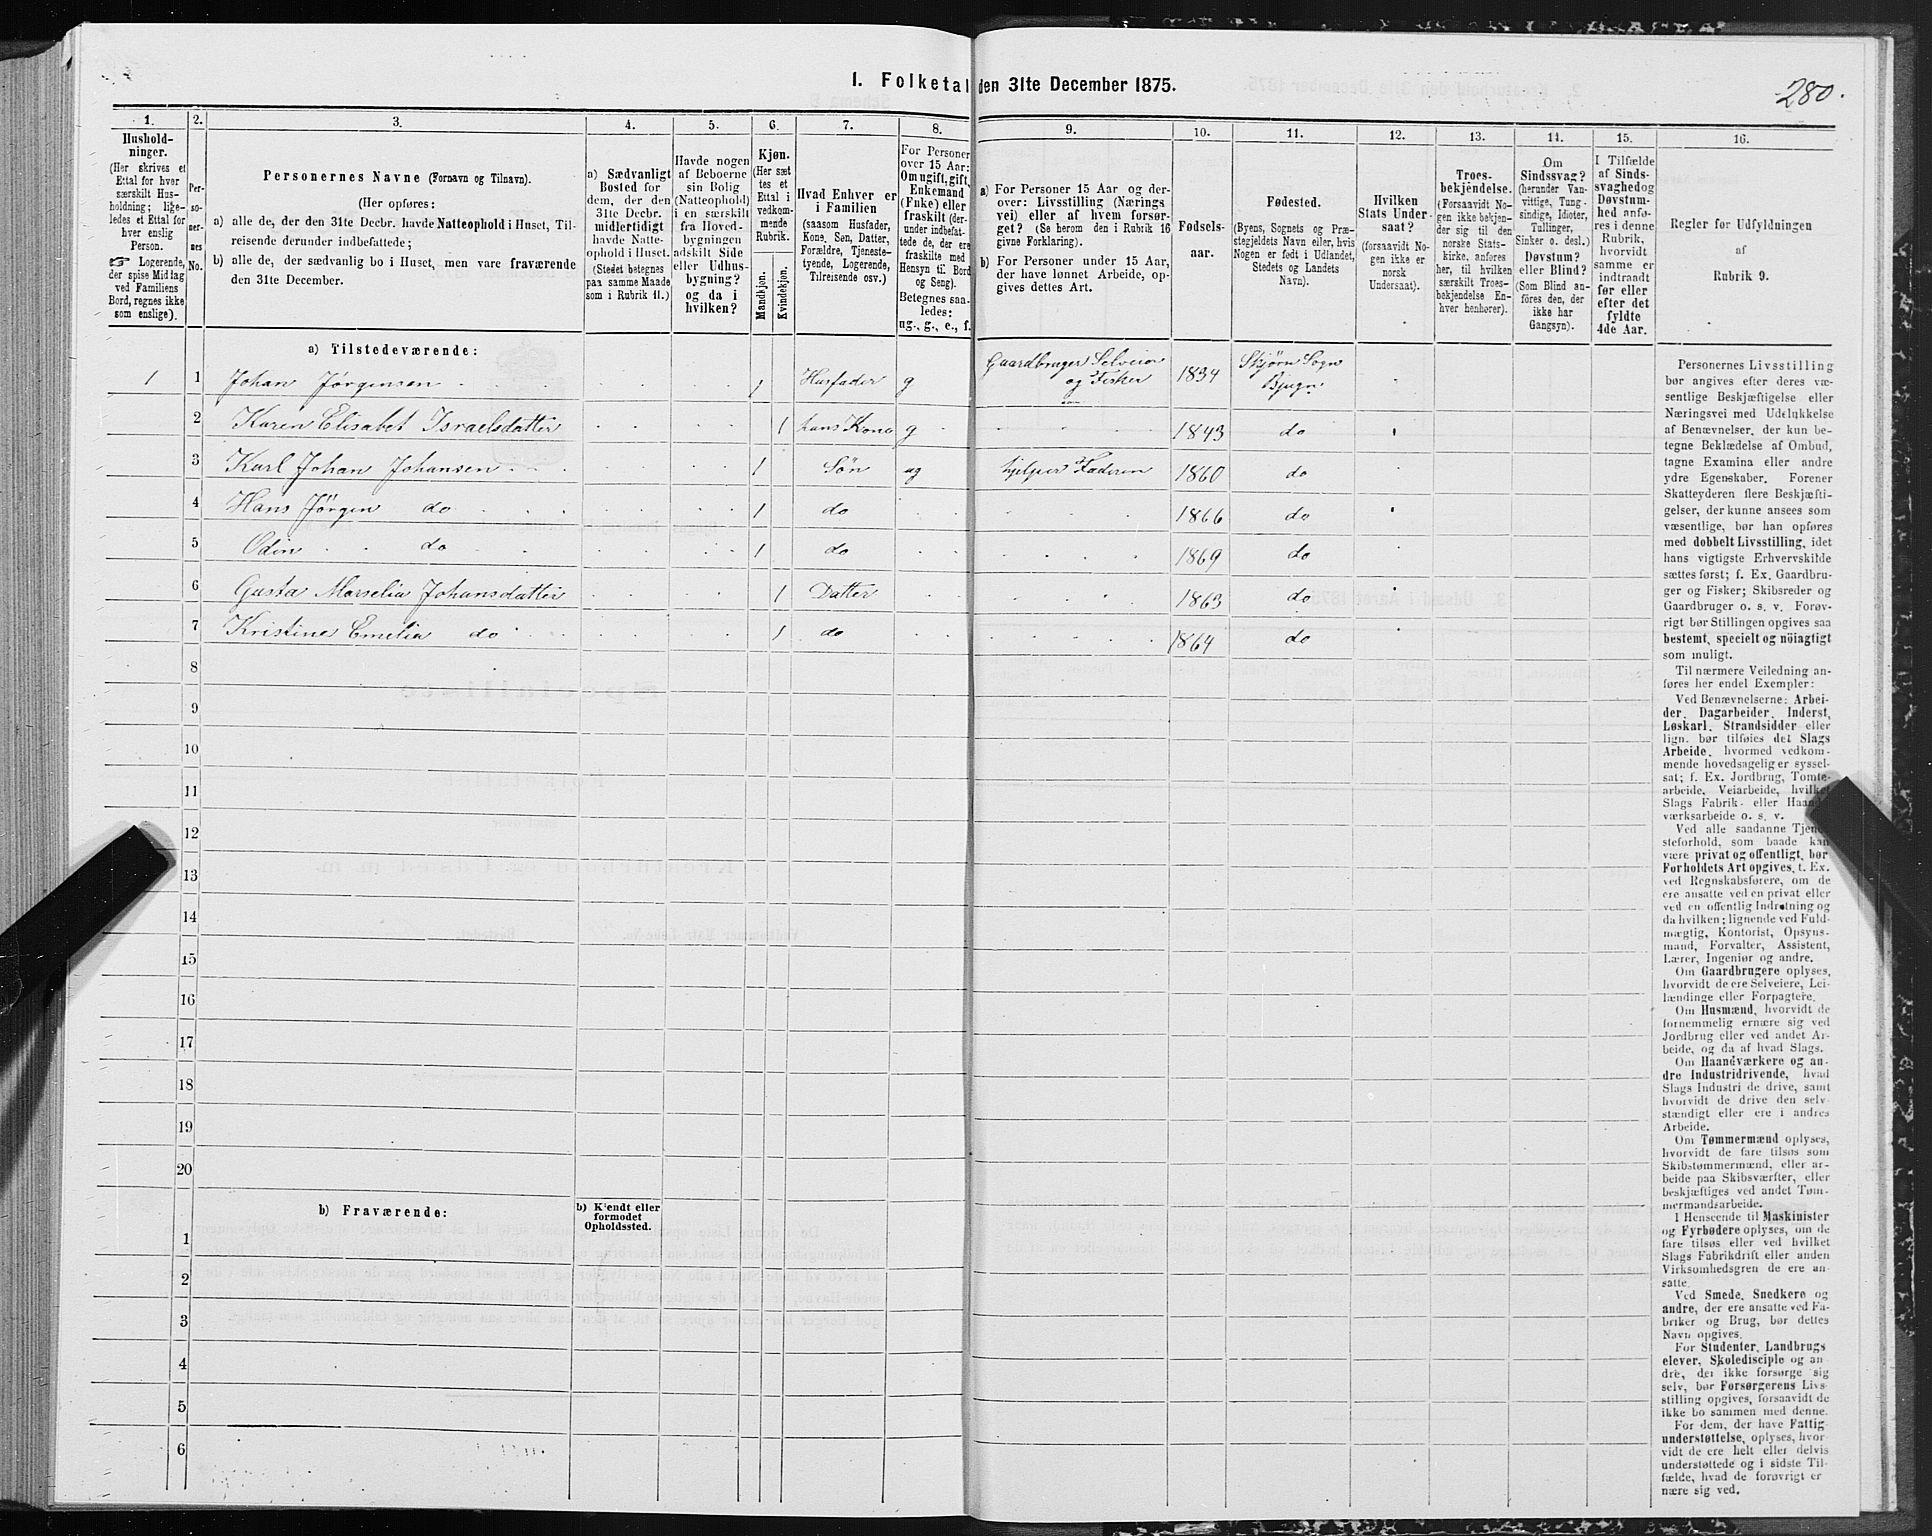 I. Folketal den 31te December 1875.
280.
1. 2. 3. 4. 5. 6. 7. 8. 9. 10. 11. 12. 13. 14. 15. 16.
Hushold-
ninger.
(Her skrives et
Ettal for hver
særskilt Hus-
holdning; lige-
ledes et Ettal for
hver enslig
Person.
☞ Logerende,
der spise Middag
ved Familiens
Bord, regnes ikke
som enslige).
Per-
so-
ner-
nes
No.
Personernes Navne (Fornavn og Tilnavn).
(Her opføres:
a) alle de, der den 31te Decbr. havde Natteophold i Huset, Til-
reisende derunder indbefattede;
b) alle de, der sædvanlig bo i Huset, men vare fraværende
den 31te December.
a) Sædvanligt
Bosted for
dem, der den
31te Decbr.
midlertidigt
havde Natte-
ophold i Huset.
(Stedet betegnes
paa samme Maade
som i Rubrik 11.)
Havde nogen
af Beboerne
sin Bolig
(Natteophold)
i en særskilt
fra Hoved-
bygningen
adskilt Side
eller Udhus-
bygning?
og da i
hvilken?
Kjøn.
(Her sæt
tes et
Ettal i
vedkom-
mende
Rubrik.
Mandkjøn.
Kvindekjøn.
Hvad Enhver er
i Familien
(saasom Husfader,
Kone, Søn, Datter,
Forældre, Tjeneste-
tyende, Logerende,
Tilreisende osv.)
For Personer
over 15 Aar:
Om ugift, gift,
Enkemand
(Enke) eller
fraskilt (der-
under indbefat-
tede de, der ere
fraskilte med
Hensyn til Bord
og Seng).
Betegnes saa-
ledes:
ug., g., e., f.
a) For Personer 15 Aar og der-
over: Livsstilling (Nærings
vei) eller af hvem forsør-
get? (Se herom den i Rubrik 16
givne Forklaring).
b) For Personer under 15 Aar,
der have lønnet Arbeide, op-
gives dettes Art.
Fødsels-
aar.
Fødested.
(Byens, Sognets og Præ-
stegjeldets Navn eller, hvis
Nogen er født i Udlandet,
Stedets og Landets
Navn).
Hvilken
Stats Under-
saat?
(forsaavidt No-
gen ikke er
norsk
Undersaat).
Troes-
bekjendelse.
(Forsaavidt No-
gen ikke bekjen-
der sig til den
norske Stats-
kirke, anføres
her, til hvilken
særskilt Troes-
bekjendelse En-
hver henhører).
Om
Sindssvag?
(herunder Van-
vittige, Tung-
sindige, Idioter,
Tullinger,
Sinker o. desl.)
Døvstum?
eller Blind?
(Som Blind an-
føres den, der
ikke har
Gangsyn).
I Tilfælde
af Sinds-
svaghed og
Døvstum-
hed anfø-
res i denne
Rubrik,
hvorvidt
samme er
indtraadt
før eller
efter det
fyldte
4de Aar.
Regler for Udfyldningen
af
Rubrik 9.
a) Tilstedeværende:
1 1 Johan Jørgensen 1 Husfader g Gaardbruger Selveier og Fisker 1834 Skjørn Sogn Bjugn
2 Karen Elisabet Israelsdatter 1 hans Kone g 1843 do
3 Karl Johan Johansen 1 Søn ug hjelper Faderen 1860 do
4 Hans Jørgen do 1 do 1866 do
5 Odin do 1 do 1869 do
6 Gusta Marselia Johansdatter 1 Datter 1863 do
7 Kristine Emelia do 1 do 1864 do
8
9
10
11
12
13
14
15
16
17
18
19
20
b) Fraværende:
b) Kjendt eller
formodet
Opholdssted.
1
2
3
4
5
6
Personernes Livsstilling
bør angives efter deres væ-
sentlige Beskjæftigelse eller
Næringsvei med Udelukkelse
af Benævnelser, der kun be-
tegne Beklædelse af Ombud,
tagne Examina eller andre
ydre Egenskaber. Forener
Skatteyderen flere Beskjæfti-
gelser, der kunne ansees som
væsentlige, bør han opføres
med dobbelt Livsstilling, idet
hans vigtigste Erhvervskilde
sættes først; f. Ex. Gaardbru-
ger og Fisker; Skibsreder og
Gaardbruger o. s. v. Forøv-
rigt bør Stillingen opgives saa
bestemt, specielt og nöiagtigt
som muligt.
Til nærmere Veiledning an-
føres her endel Exempler:
Ved Benævnelserne: Arbei-
der, Dagarbeider, Inderst,
Løskarl, Strandsidder eller
lign. bør tilføies det Slags
Arbeide, hvormed vedkom-
mende hovedsagelig er syssel-
sat; f. Ex. Jordbrug, Tomte-
arbeide, Veiarbeide, hvilket
Slags Fabrik- eller Haand-
værksarbeide o. s. v.
Ved alle saadanne Tjene-
steforhold, som baade kan
være privat og offentligt, bør
Forholdets Art opgives, t. Ex.
ved Regnskabsførere, om de
ere ansatte ved en privat eller
ved en offentlig Indretning og
da hvilken; lignende ved Fuld-
mægtig, Kontorist, Opsyns-
mand, Forvalter, Assistent,
Lærer, Ingeniør og andre.
Om Gaardbrugere oplyses,
hvorvidt de ere Selveiere, Lei-
lændinge eller Forpagtere.
Om Husmænd, hvorvidt de
fornemmelig ernære sig ved
Jordbrug eller ved andet Ar-
beide, og da af hvad Slags.
Om Haandværkere og an-
dre Industridrivende, hvad
Slags Industri de drive, samt
hvorvidt de drive den selv-
stændigt eller ere i andres
Arbeide.
Om Tømmermænd oplyses,
hvorvidt de fare tilsøs som
Skibstømmermænd, eller ar-
beide paa Skibsværfter, eller
beskjæftiges ved andet Tøm-
mermandsarbeide.
I Henseende til Maskinister
og Fyrbødere oplyses, om de
fare tilsøs eller ved hvilket
Slags Fabrikdrift eller anden
Virksomhedsgren de ere an-
satte.
Ved Smede, Snedkere og
andre, der ere ansatte ved Fa-
briker og Brug, bør dettes
Navn opgives.
For Studenter, Landbrugs
elever, Skoledisciple og an-
dre, der ikke forsørge sig
selv, bør Forsørgerens Livs-
stilling opgives, forsaavidt de
ikke bo sammen med denne.
For dem, der have Fattig-
understøttelse, oplyses, hvor-
vidt de ere helt eller delvis
understøttede og i sidste Til-
fælde, hvad de forøvrigt er
nære sig ved.